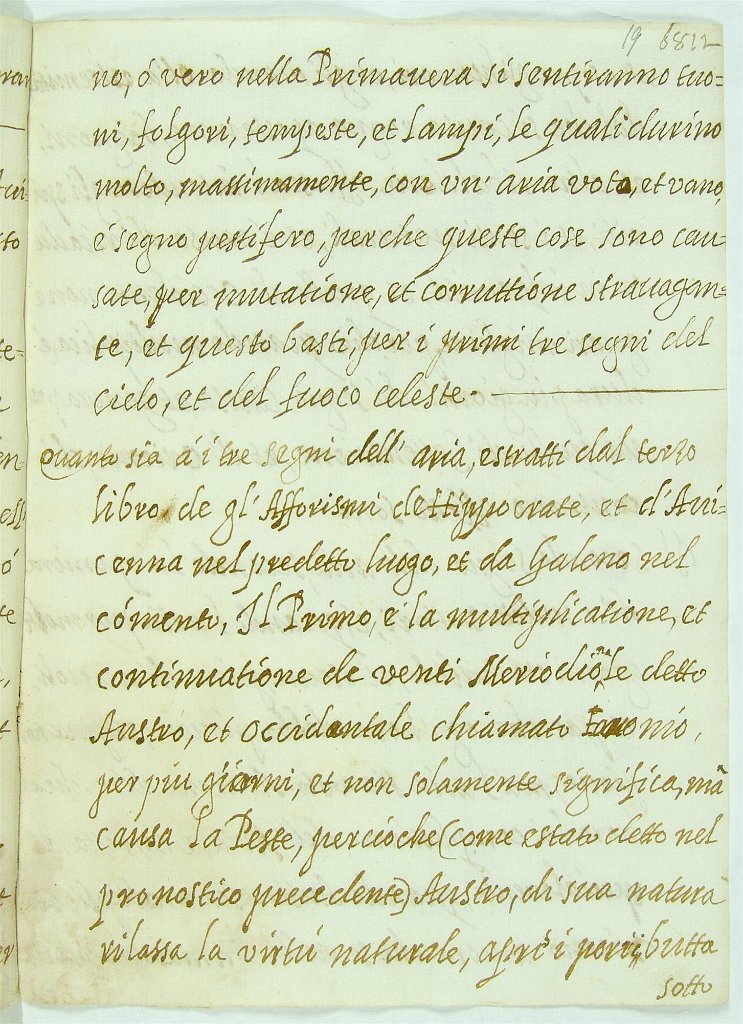 19 6812
no, ó vero nella Primavera si sentiranno tuo=
ni, folgori, tempeste, et lampi, le quali durino
molto, massimamente, con un' aria vota, et vano,
é segno pestifero, perche queste cose sono cau=
sate, per mutatione, et corruttione stravagan=
te, et questo basti, per i primi tre segni del
cielo, et del fuoco celeste.
Quanto sia á i tre segni dell' aria, estratti dal terzo
libro, de gl' Afforismi d'Hippocrate, et d'Avi=
cenna nel predetto luogo, et da Galeno nel
cómento, Il Primo, é la multiplicatione, et
continuatione de venti Meriodionale detto
Austro, et occidentale chiamato Favonio,
per piu giorni, et non solamente significa, mà
causa la Peste, percioche (come estato detto nel
pronostico precedente) Austro, di sua natura
rilassa la virtú naturale, apre i porri, butta
sotto